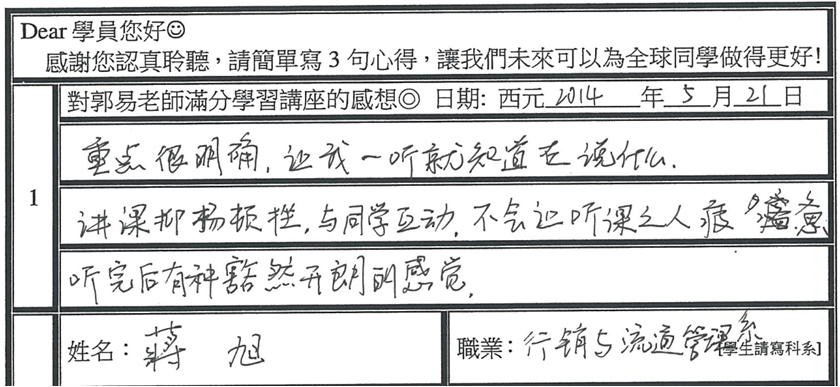 Dear 學員您好☺
感謝您認真聆聽，請簡單寫3句心得，讓我們未來可以為全球同學做得更好!
對郭易老師滿分學習講座的感想◎ 日期: 西元 2014 年 5 月 21 日
1
重点很明确，让我一听就知道在说什么.
讲课抑杨顿挫，与同学互动，不会让听课之人疲惫
听完后有种豁然开朗的感觉.
姓名：蔣 旭
職業：行销与流通管理系 [學生請寫科系]